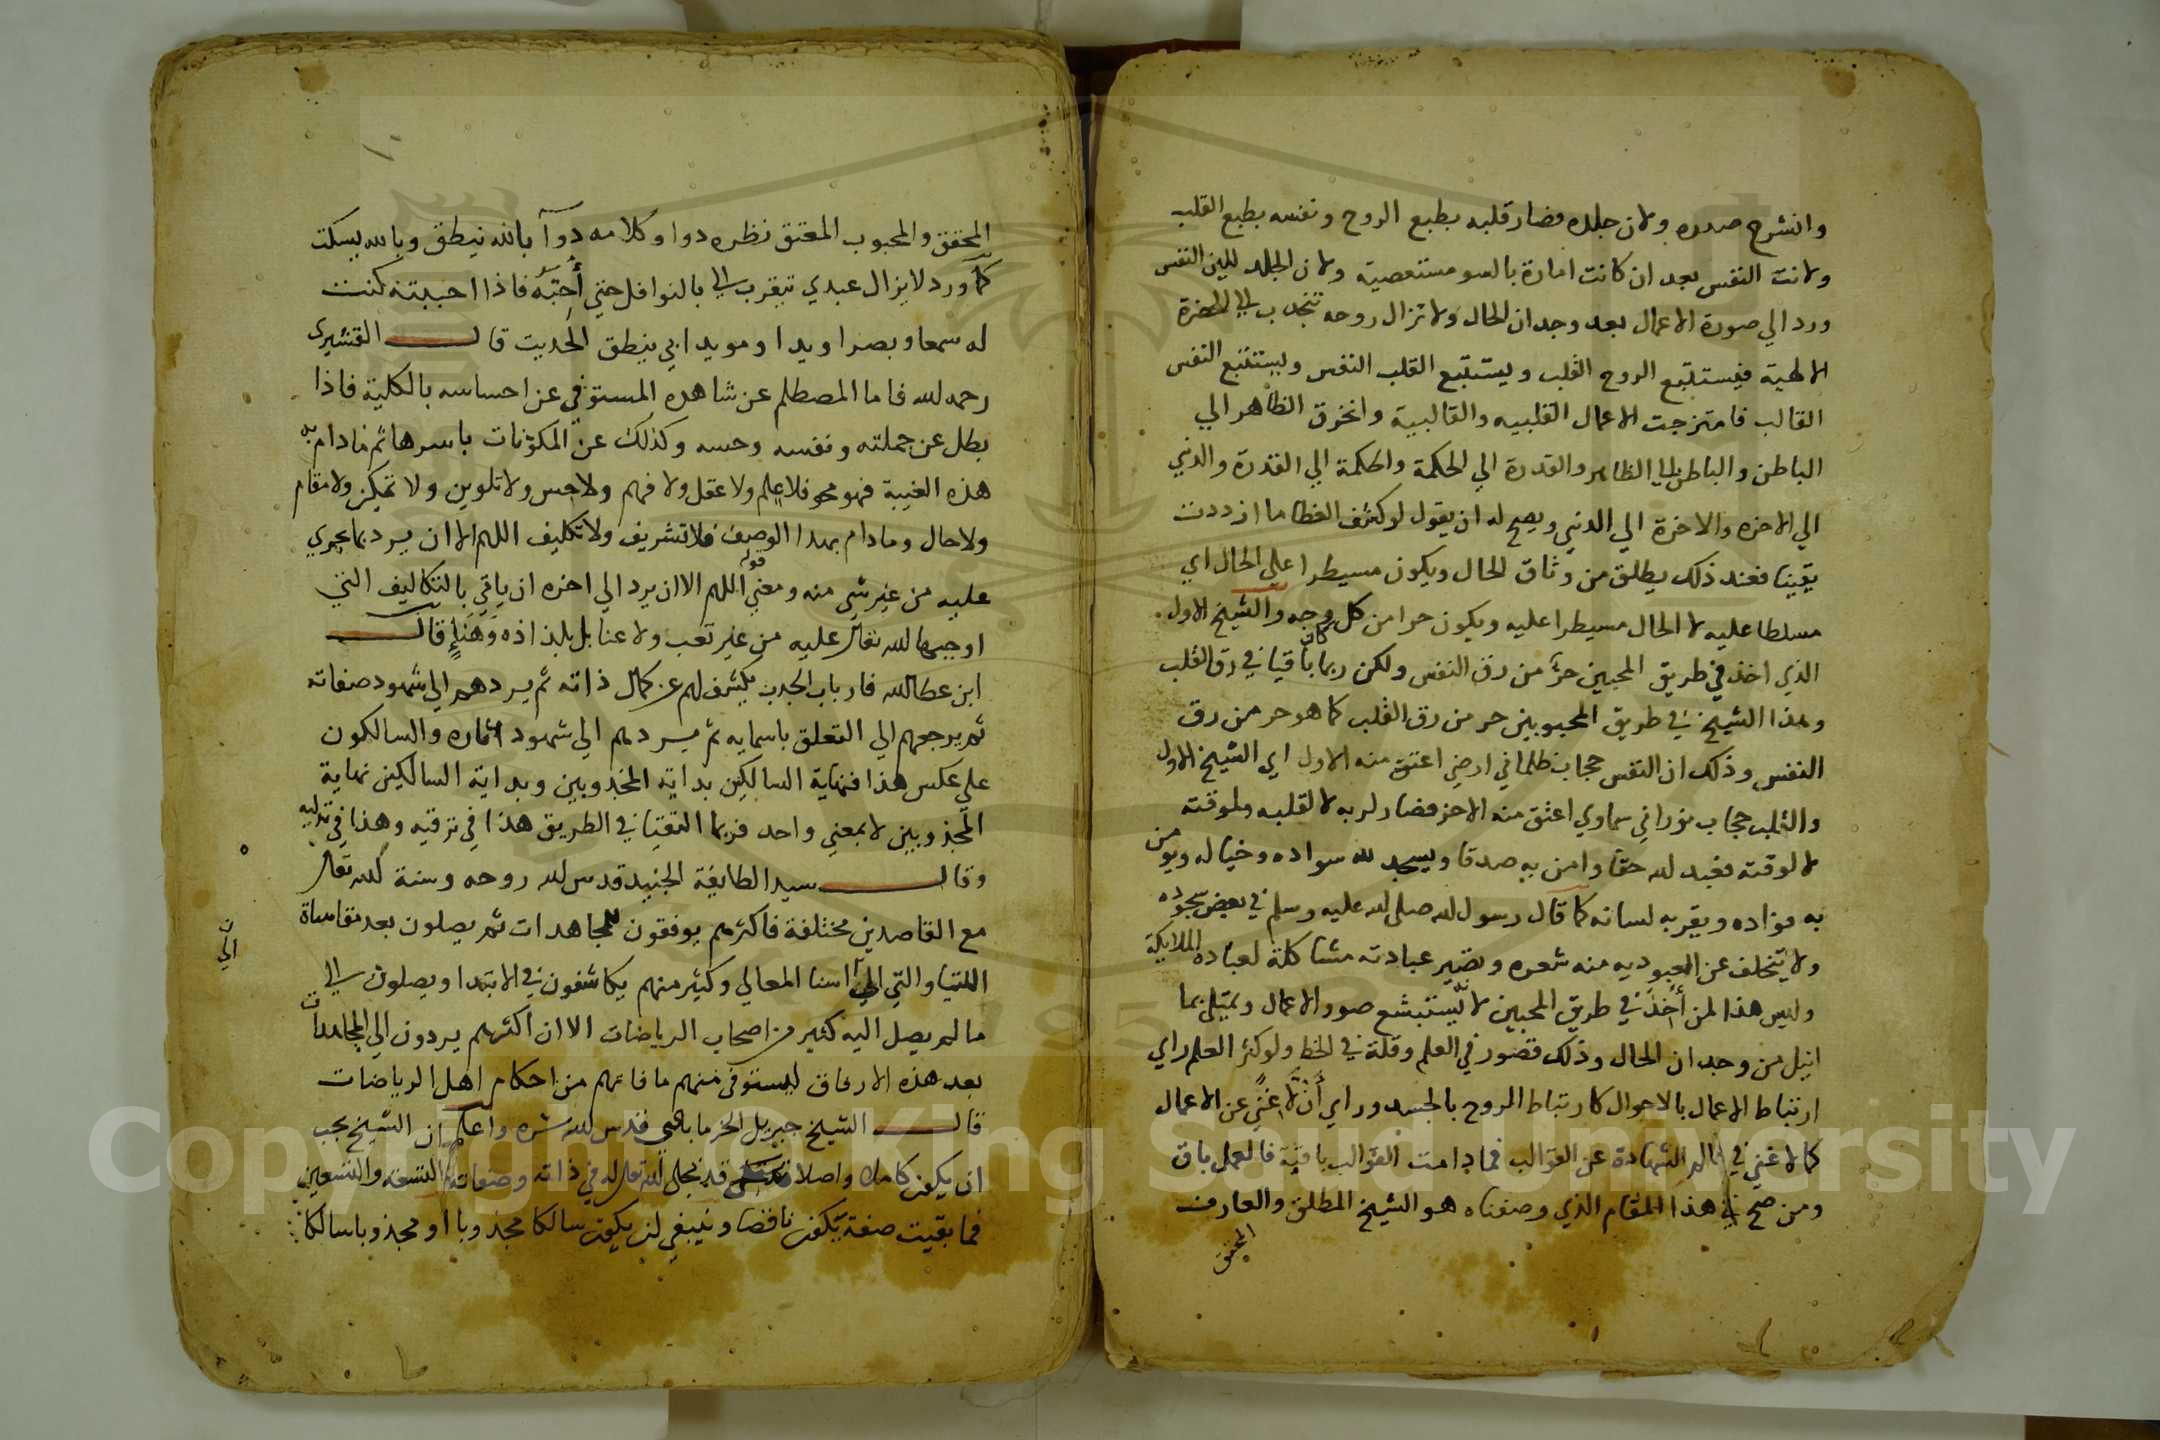 وانشرح صدره ولان جلده فصار قلبه بطبع الروح ونفسه بطبع القلب
ولانت النفس بعد ان كانت امارة بالسو مستعصية ولان الجلد للين النفس
ورد الي صورة الاعمال بعد وجدان الحال ولا تزال روحه تنجذب الي الحضرة
الالهية فيستتبع الروح القلب ويستتبع القلب النفس ويستتبع النفس
القالب فامتزجت الاعمال القلبيه والقالبية وانخرق الظاهر الي
الباطن والباطن الي الظاهر والقدرة الي الحكمة والحكمة الي القدرة والدني
الي الاخره والاخرة الي الدني ويصح له ان يقول لو كشف الغطا ما ازددت
يقينا فعند ذلك يطلق من وثاق الحال ويكون مسيطرا علي الحال اي
مسلطا عليه لا الحال مسيطرا عليه ويكون حرا من كل وجه والشيخ الاول
الذي اخذ في طريق المحبين حر من رق النفس ولكن ربما كان باقيا في رق القلب
وهذا الشيخ في طريق المحبوبين حر من رق القلب كما هو حر من رق
النفس وذلك ان النفس حجاب ظلماني ارضي اعتق منه الاول اي الشيخ الاول
والقلب حجاب نوراني سماوي اعتق منه الاخر فصار لربه لا لقلبه ولموقته
لا لوقته فعبد لله حقا وامن به صدقا ويسجد لله سواده وخياله ويومن
به فواده ويقر به لسانه كما قال رسول لله صلي لله عليه وسلم في بعض سجوده
ولا يتخلف عن العبوديه منه شعره وتصير عبادته مشاكلة لعباده الملايكة
وليس هذا لمن أخذ في طريق المحبين لا يستبشع صور الاعمال ويمتلي بما
انيل من وجدان الحال وذلك قصور في العلم وقلة في الحظ ولو كثر العلم راي
ارتباط الاعمال بالاحوال كارتباط الروح بالجسد وراي أن لا غني عن الاعمال
كما لا غني في عالم الشهادة عن القوالب فما دامت القوالب باقية فالعمل باق
ومن صح في هذا المقام الذي وصفناه هو الشيخ المطلق والعارف
المحقق
المحقق والمحبوب المعتق نظره دوا وكلامه دوآ بالله ينطق وبالله يسكت
كما ورد لا يزال عبدي يتقرب الي بالنوافل حتي أحبه فاذا احببته كنت
له سمعا وبصرا ويدا ومويدا بي ينطق الحديث قال القشيري
رحمه لله فاما المصطلم عن شاهده المستوفي عن احساسه بالكلية فاذا
بطل عن جملته ونفسه وحسه وكذلك عن المكونات باسرها ثم ما دام به
هذه الغيبة فهو محو فلا علم ولا عقل ولا فهم ولا حس ولا تلوين ولا تمكين ولا مقام
ولا حال وما دام بهذا الوصف فلا تشريف ولا تكليف اللهم الا ان يرد بما يجري
عليه من غير شي منه ومعني قوله اللهم الا ان يرد الي اخره ان ياتي بالتكاليف التي
اوجبها لله تعالي عليه من غير تعب ولا عنا بل بلذاذه وهنإ قال
ابن عطا الله فارباب الجذب يكشف لهم عن كمال ذاته ثم يردهم الي شهود صفاته
ثم يرجعهم الي التعلق باسمايه ثم يردهم الي شهود اثاره والسالكون
علي عكس هذا فنهاية السالكين بداية المجذوبين وبداية السالكين نهاية
المجذوبين لا بمعني واحد فربما التقيا في الطريق هذا في ترقيه وهذا في تدليه
وقال سيد الطايفة الجنيد قدس لله روحه وسنة لله تعالي
مع القاصدين مختلفة فاكثرهم يوفقون للمجاهدات ثم يصلون بعد مقاساة
اللتيا والتي الي اسنا المعالي وكثير منهم يكاشفون في الابتدا ويصلون الي
الي
ما لم يصل اليه كثير من اصحاب الرياضات الا ان اكثرهم يردون الي المجاهدات
بعد هذه الارفاق ليستوفي منهم ما فاتهم من احكام اهل الرياضات
قال الشيخ جبريل الخرماباذي قدس لله سره واعلم ان الشيخ يجب
ان يكون كاملا واصلا قد تجلي لله تعالي له في ذاته وصفاته التسعه والتسعين
فما بقيت صفة يكون ناقصا وينبغي ان يكون سالكا مجذوبا او مجذوبا سالكا
Copyright © King Saud University